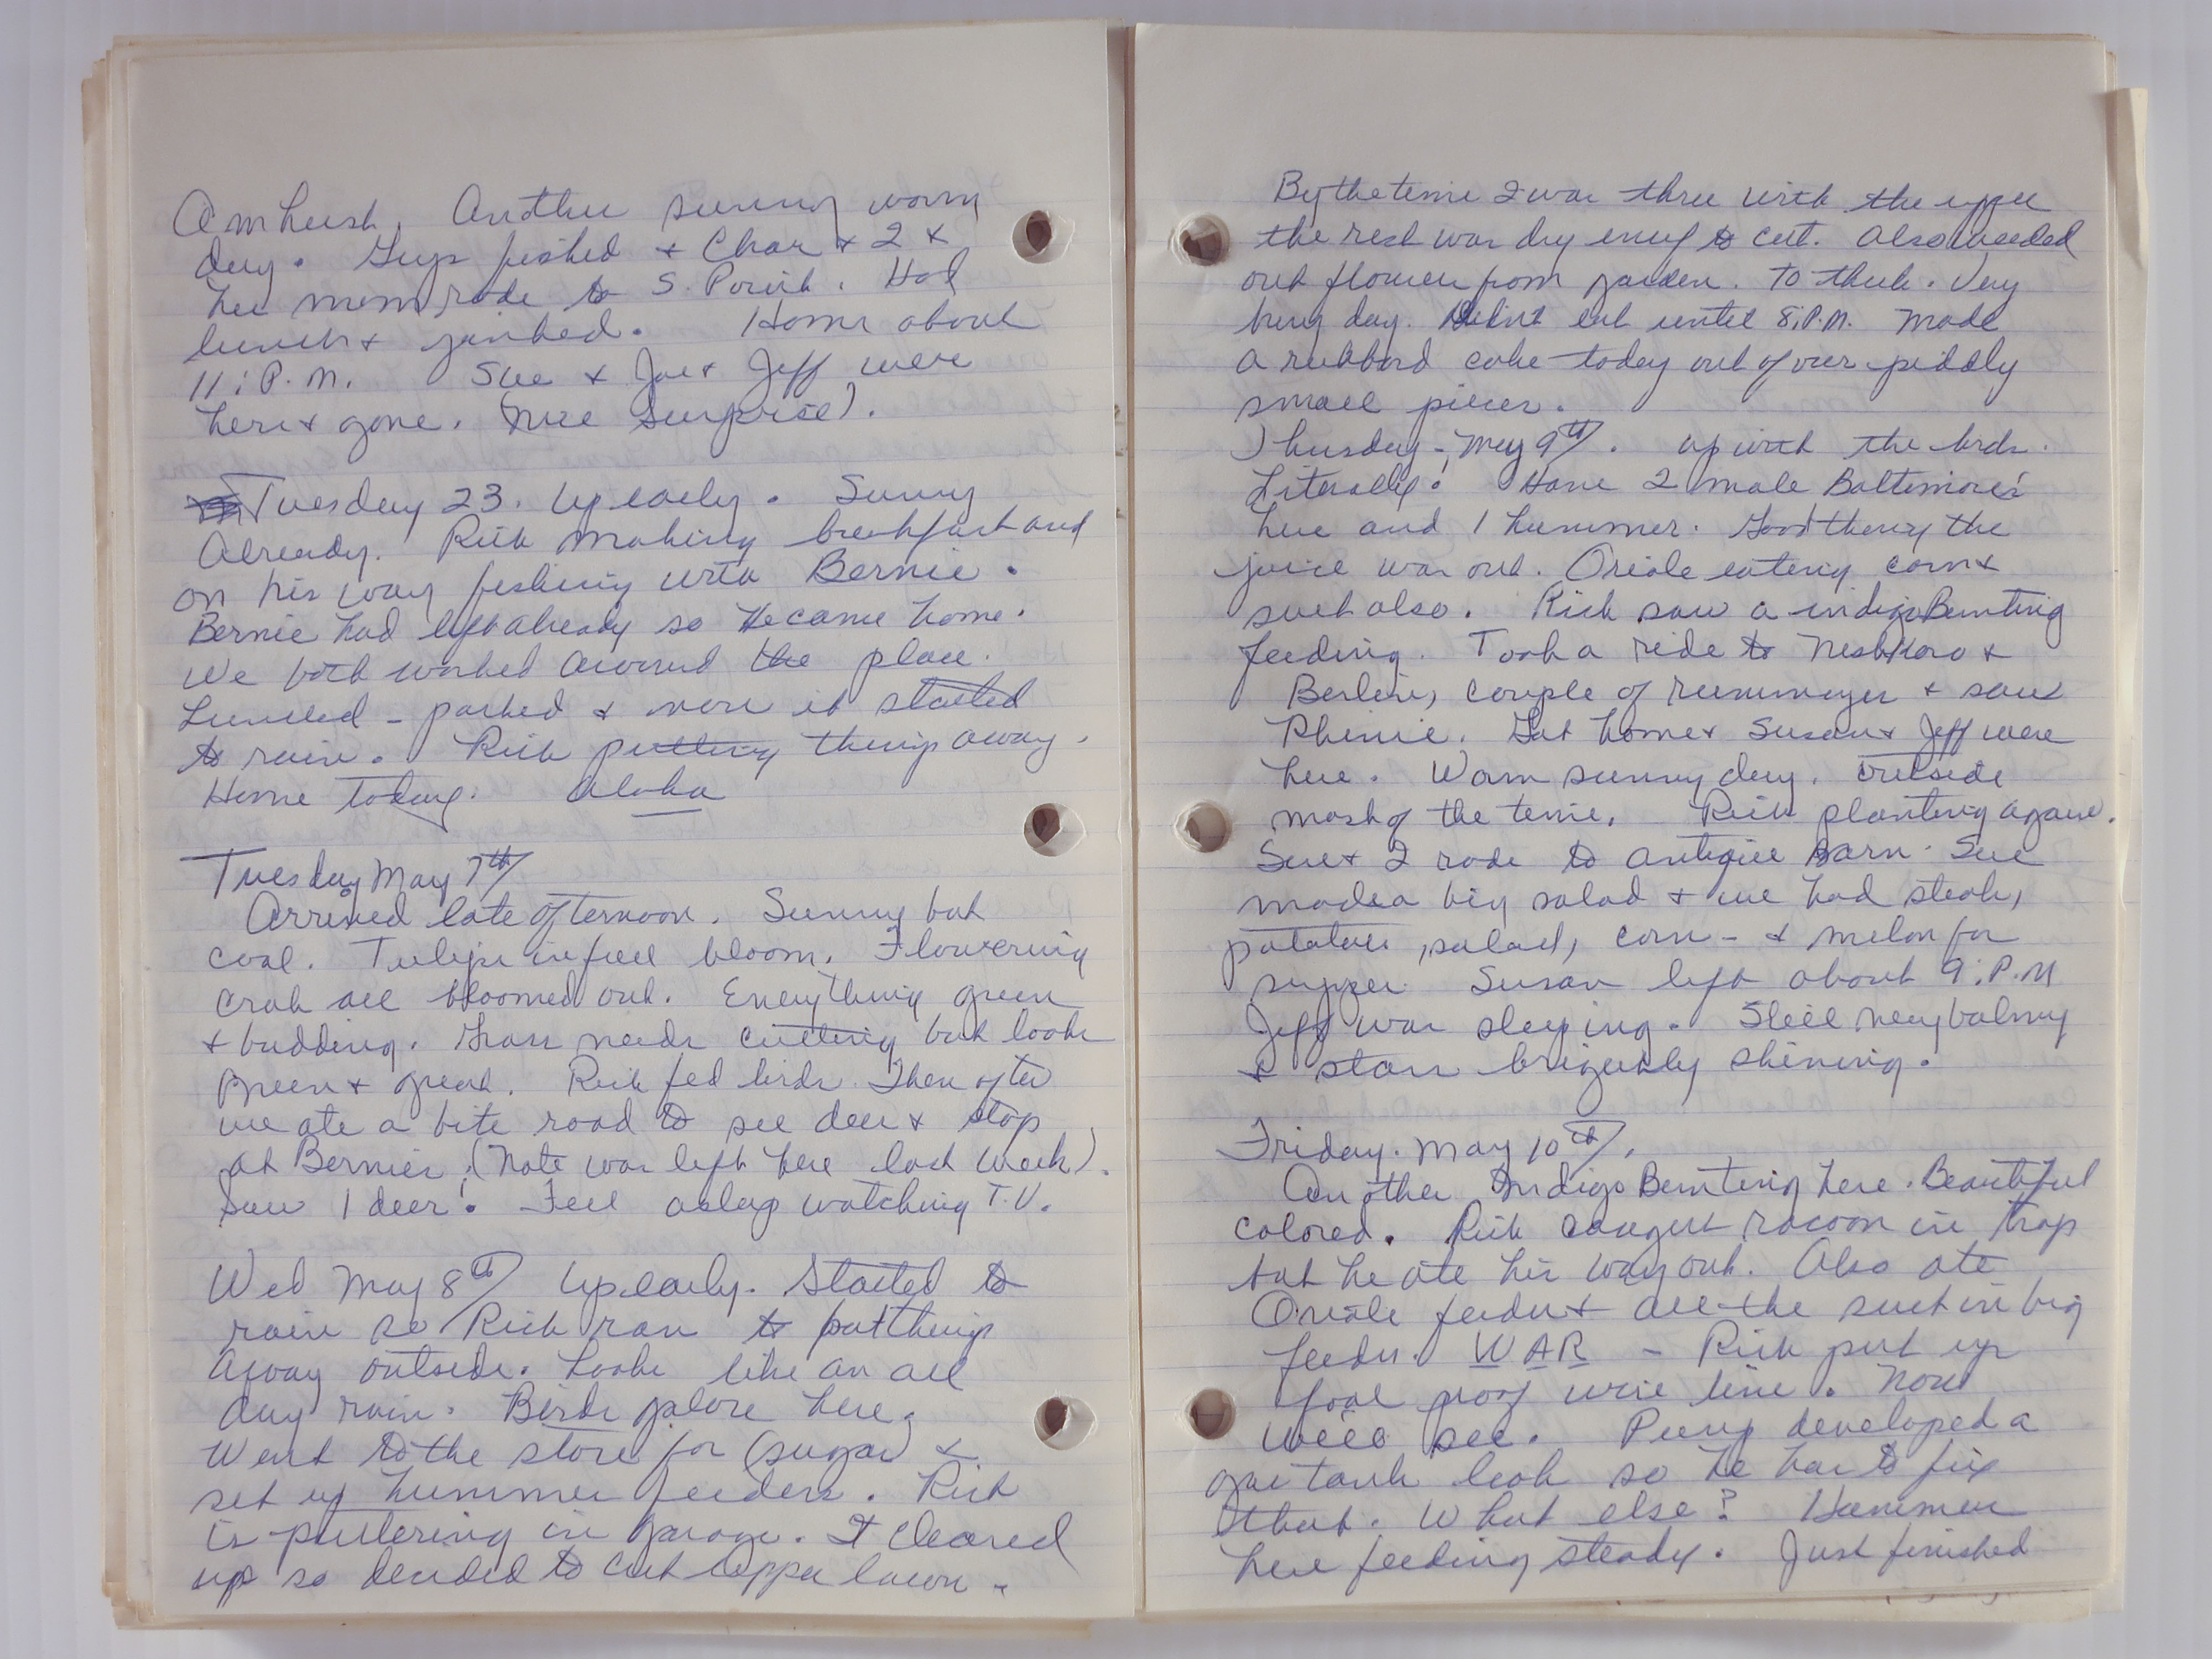 Amherst. Another sunny warm
day. Guys fished & Char & I &
her mom rode to S. Point. Had
lunch & junked. Home about
11:P.M. Sue & Joe & Jeff were
here & gone. Nice surprise).
Tuesday 23. Up early. Sunny
Already. Rick making breakfast and
on his way fishing with Bernie.
Bernie had left already so He came home.
We both worked around the place.
Lunched - packed & now it started
to rain. Rick putting things away.
Home today. Aloha
Tuesday May 7th
Arrived late afternoon. Sunny but
cool. Tulips in full bloom. Flowering
crab all bloomed out. Everything green
& budding. Grass needs cutting but looks
green & great. Rick fed birds. Then after
we ate a bite road to see deer & stop
at Bernies. (Note was left here last week).
Saw 1 deer! Fell aslep watching T.V.
Wed May 8th Up early. Started to
rain so Rick ran to put things
away outside. Looks like an all
day rain. Birds galore here.
Went to the store for (sugar) &
set up hummer feeders. Rick
is puttering in garage. It cleared
up so decided to cut upper lawn.
By the time I was thru with the upper
the rest was dry enuf to cut. Also weeded
out flowers from garden. To thick. Very
busy day. Didn't eat until 8:P.M. Made
a rubbard cake today out of our piddly
small pieces.
Thursday - May 9th. Up with the birds.
Literally! Have 2 male Baltimore's
here and 1 hummer. Good thing the
juice was out. Oriole eating corn &
suet also. Rick saw a indigo Bunting
feeding. Took a ride to Neshkoro &
Berlin, couple of rummages & saw
Phinie. Got home & Susan & Jeff were
here. Warm sunny day. Outside
most of the time. Rick planting again.
Sue & I rode to antique Barn. Sue
made a big salad & we had steak,
potatoes, salad, corn - & melon for
supper. Susan left about 9:P.M
Jeff was sleeping. Still very balmy
& stars briguhly shining.
Friday. May 10th.
Another Indigo Bunting here. Beautiful
colored. Rick caught racoon in trap
but he ate his way out. Also ate
Oriole feeder & all the suet in big
feeder. WAR - Rick put up
fool proof wire line. Now
we'll see. Pump developed a
gas tank leak so he has to fix
that. What else? Hummer
here feeding steady. Just finished